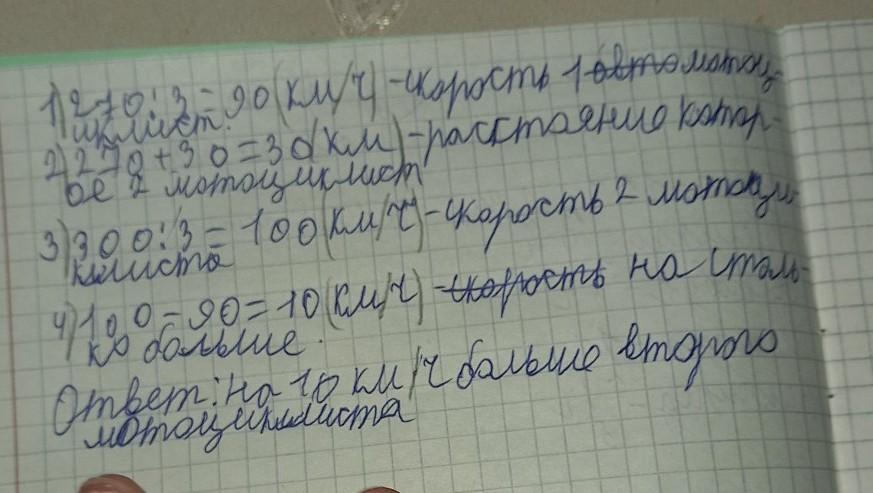 1) 270:3=90(км/ч)-скорость 1 авто мотоц-
иклист.
2) 270+30=30(км)-расстояние котор-
ое 2 мотоциклист
3) 300:3=100(км/ч)-скорость 2 мотоци-
клиста
4) 100-90=10(км/ч)-скорость на столь-
ко больше.
Ответ: на 10 км/ч больше второго
мотоциклиста